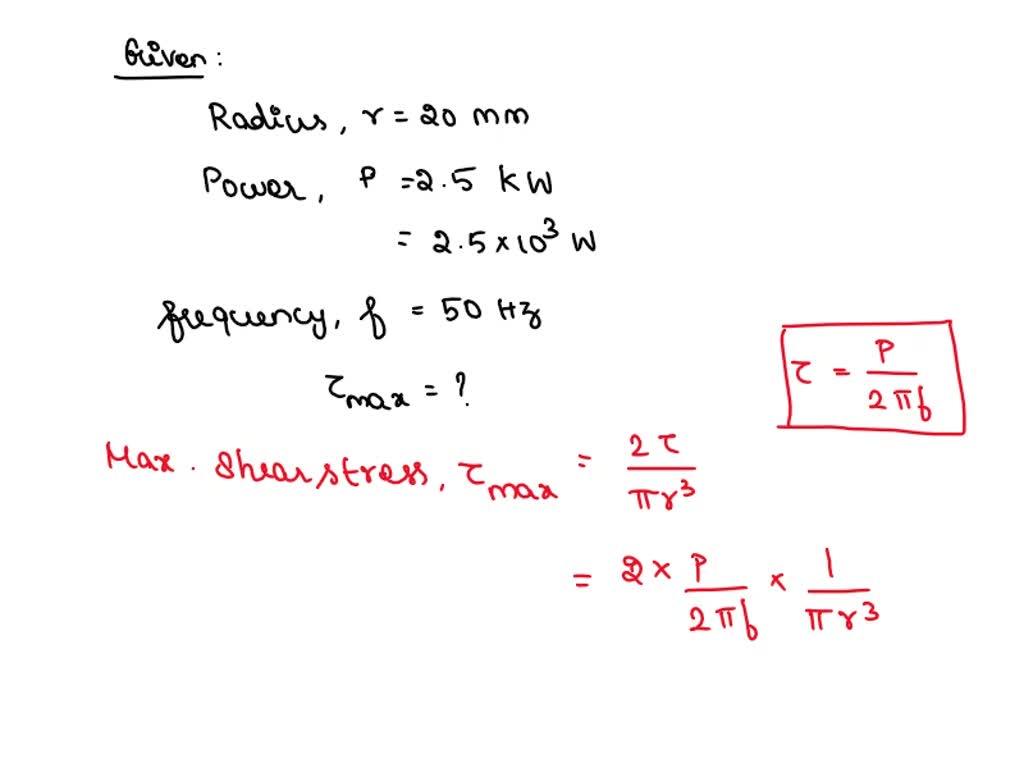 Given:
Radius, r = 20 mm
Power, P = 2.5 kW
= 2.5×10³ W
frequency, f = 50 Hz
τmax = ?
τ = P / 2πf
Max. Shear stress, τmax = 2τ / πr³
= 2 × P / 2πf × 1 / πr³